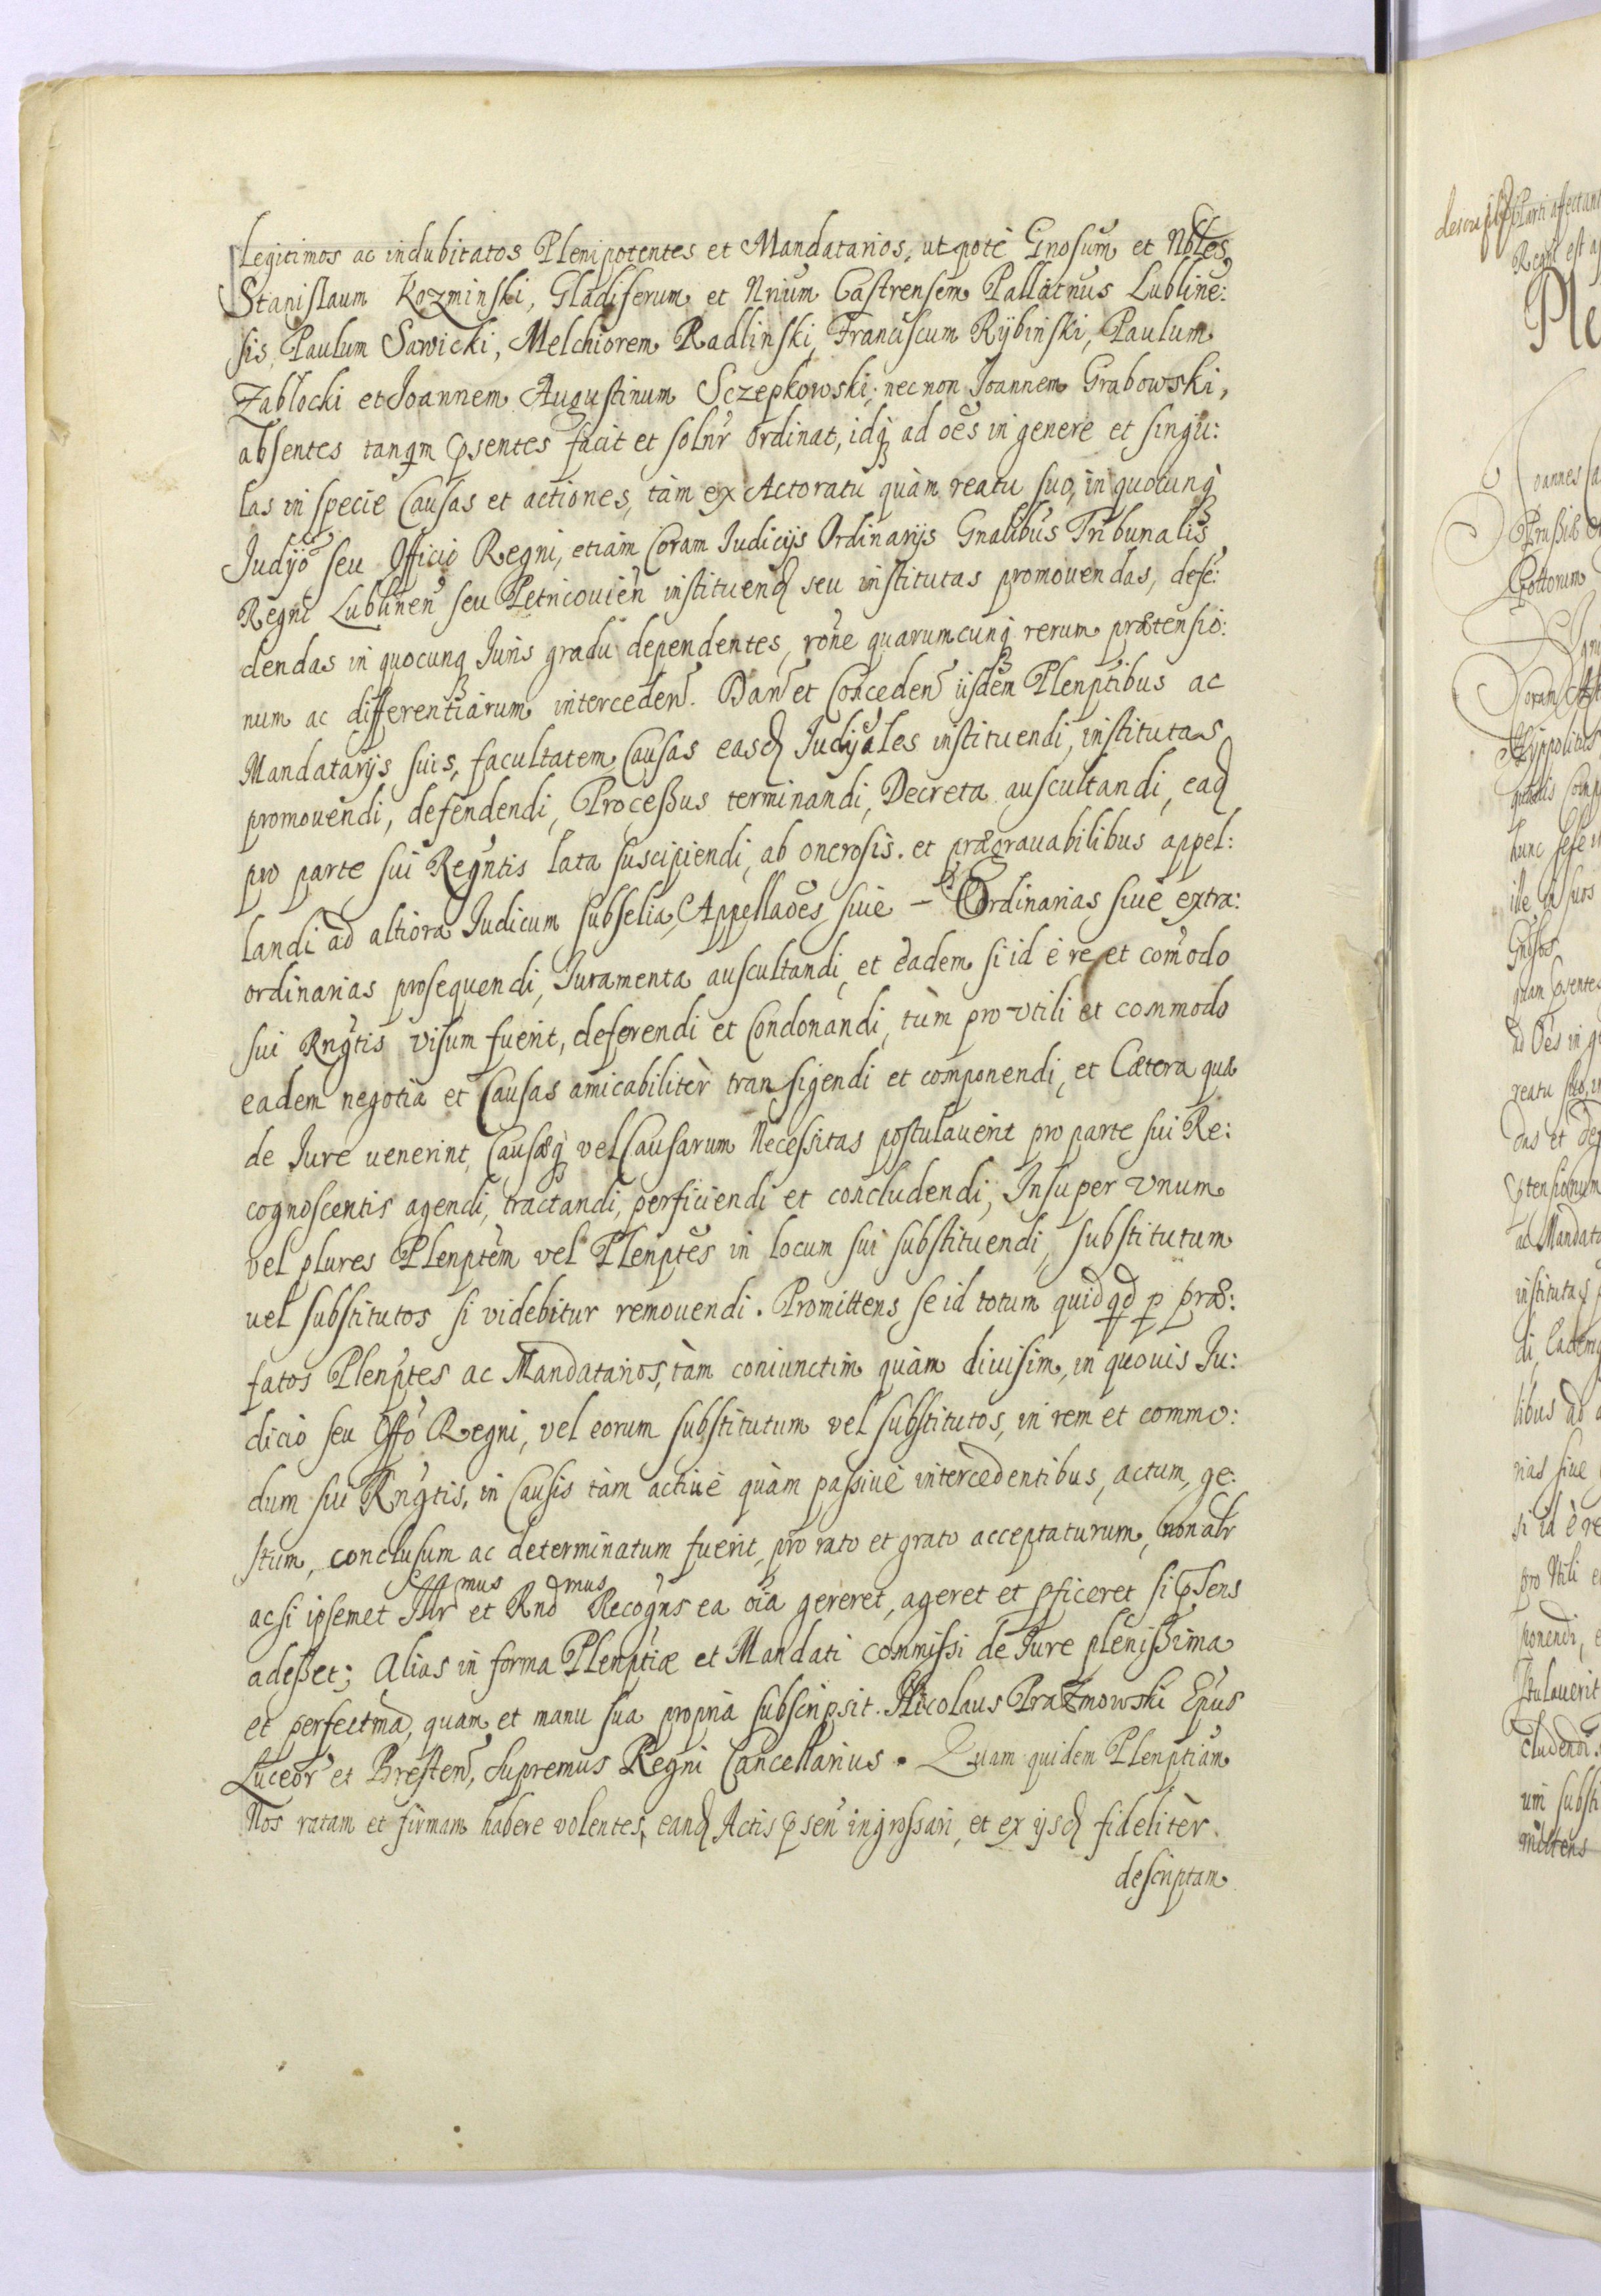 Legitimos ac indubitatos Plenipotentes et Mandatarios, utpotè Gnosum et Nobles
Stanislaum Kozminski, Gladiferum et Nrium Castrensem Pallatnus Lubline:
sis, Paulum Sawicki, Melchiorem Radlinski, Franciscum Rÿbinski, Paulum
Zablocki et Joannem Augustinum Sczepkowski; nec non Joannem Grabowski,
absentes tanqm psentes facit et solnr ordinat, idq ad oes in genere et singu:
las in specie Causas et actiones, tàm ex Actoratu quàm reatu suo, in quocunq
Judÿo seu Officio Regni, etiam Coram Judicÿs Ordinarÿs Gnalibus Tribunalis
Regni Lublinen seu Petricouien instituend seu institutas promouendas, defe:
dendas in quocunq Juris gradu dependentes, rone quarumcunq rerum prætensio:
num ac differentiarum interceden. Dan et Conceden iisdem Plenptibus ac
Mandatarÿs suis, facultatem Causas easd Judÿales instituendi, institutas
promouendi, defendendi, Processus terminandi, Decreta auscultandi, ead
pro parte sui Regntis lata suscipiendi, ab onerosis. et prægrauabilibus appel:
landi ad altiora Judicum subselia, Appellaoes siue – Ordinarias siue extra:
ordinarias prosequendi, Juramenta auscultandi, et eadem si id è re et comodo
sui Rngtis visum fuerit, deferendi et Condonandi, tùm pro vtili et commodo
eadem negotia et Causas amicabilitèr transigendi et componendi, et Cætera quæ
de Jure uenerint, Causæq vel Causarum Necessitas postulauerit pro parte sui Re:
cognoscentis agendi, tractandi, perficiendi et concludendi, Insuper vnum
vel plures Plenptem vel Plenptes in locum sui substituendi, substitutum
uel substitutos si videbitur remouendi. Promittens se id totum quidqd p præ:
fatos Plenptes ac Mandatarios, tàm coniunctim quàm diuisim, in quouis Ju:
dicio seu Offo Regni, vel eorum substitutum vel substitutos, in rem et commo:
dum sui Rngtis, in Causis tàm actiuè quàm passiuè intercedentibus, actum, ge:
stum, conclusum ac determinatum fuerit, pro rato et grato acceptaturum, non alr
ac si ipsemet Illrmus et Rndmus Recogns ea oia gereret, ageret et pficeret si psens
adesset; Alias in forma Plenptiæ et Mandati commissi de Jure plenissima
et perfectma, quam et manu sua propria subscripsit. Nicolaus Prazmowski Epus
Luceor et Bresten, Supremus Regni Cancellarius. Quam quidem Plenptiam
Nos ratam et firmam habere volentes, eand Actis psen ingrossari, et ex ÿsd fidelitèr
descriptam